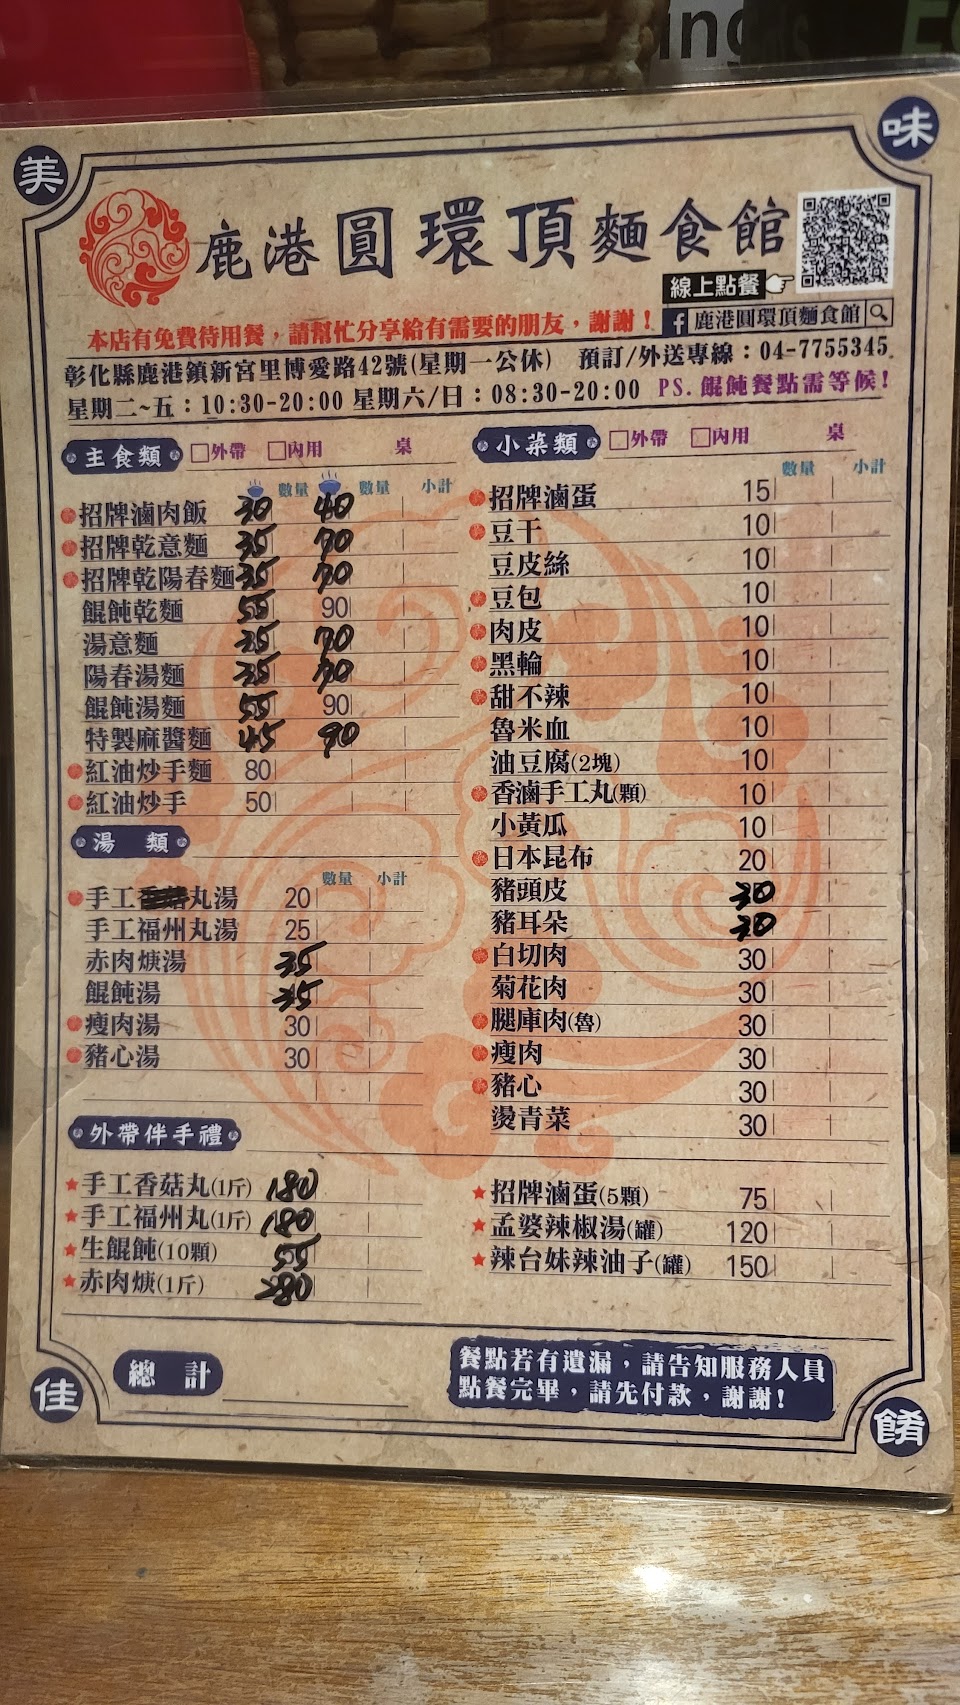 美
味
鹿港圓環頂麵食館
線上點餐
本店有免費待用餐,請幫忙分享給有需要的朋友,謝謝!
f 鹿港圓環頂麵食館
彰化縣鹿港鎮新宮里博愛路42號(星期一公休) 預訂/外送專線:04-7755345
星期二~五:10:30-20:00 星期六/日:08:30-20:00 PS.餛飩餐點需等候!
主食類 □外帶 □內用 桌
數量 數量 小計
招牌滷肉飯 30 40
招牌乾意麵 35 70
招牌乾陽春麵 35 70
餛飩乾麵 55 90
湯意麵 35 70
陽春湯麵 35 70
餛飩湯麵 55 90
特製麻醬麵 45 90
紅油炒手麵 80
紅油炒手 50
湯 類
數量 小計
手工丸湯 20
手工福州丸湯 25
赤肉焿湯 35
餛飩湯 35
瘦肉湯 30
豬心湯 30
小菜類 □外帶 □內用 桌
數量 小計
招牌滷蛋 15
豆干 10
豆皮絲 10
豆包 10
肉皮 10
黑輪 10
甜不辣 10
魯米血 10
油豆腐(2塊) 10
香滷手工丸(顆) 10
小黃瓜 10
日本昆布 20
豬頭皮 30
豬耳朵 30
白切肉 30
菊花肉 30
腿庫肉(魯) 30
瘦肉 30
豬心 30
燙青菜 30
外帶伴手禮
手工香菇丸(1斤) 180
手工福州丸(1斤) 180
生餛飩(10顆) 55
赤肉焿(1斤) 280
招牌滷蛋(5顆) 75
孟婆辣椒湯(罐) 120
辣台妹辣油子(罐) 150
總 計
餐點若有遺漏,請告知服務人員
點餐完畢,請先付款,謝謝!
佳
餚